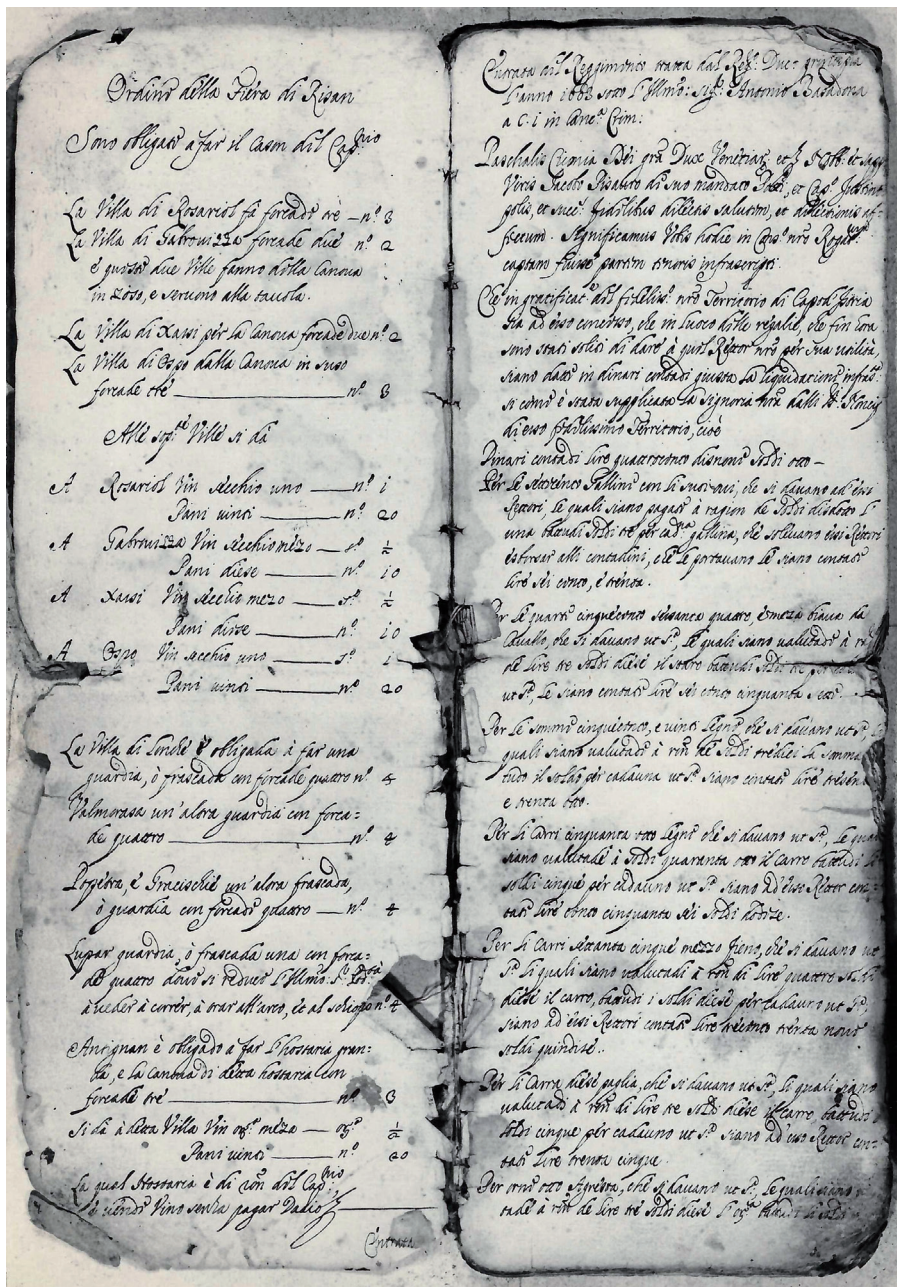 Ordine della Fiera di Risan
Sono obligati a far il Cason del Cap.nio
La Villa di Rosariol fà forcade trè — n.º 3
La Villa di Gabrovizza forcade due n.º 2
e queste due Ville fanno della Canova
in zoso, e servono alla tavola.
La Villa di Xassi per la Canova forcade due n.º 2
La Villa di Ospo dalla Canova in suso
forcade tré — n.º 3
Alle sop.te Ville si dà
A Rosariol Vin secchio uno — n.º 1
Pani vinti — n.º 20
A Gabrovizza Vin secchio mezo — s.º ½
Pani diese — n.º 10
A Xassi Vin secchio mezo — s.º ½
Pani diese — n.º 10
A Ospo Vin secchio uno — s.º 1
Pani vinti — n.º 20
La Villa di Lonche è obligada à far una
guardia, ò frascada con forcade quattro n.º 4
Valmorasa un'altra guardia con forca=
de quattro — n.º 4
Poppetra, è Gracischie un'altra frascada,
ò guardia con forcade quattro — n.º 4
Lupar guardia, ò frascada una con forca=
de quattro dove si reduce l'Ill.mo S.r Pod.tà
à veder à correr, à trar all'arco, et al schioppo n.º 4
Antignan è obligado a far l'hostaria gran=
da, e la canova di detta hostaria con
forcade tré — n.º 3
Si dà à detta Villa Vin orn.ª meza — or.ª ½
Pani vinti — n.º 20
La qual Hostaria è di ron del Cap.nio
e vende Vino senza pagar Datio
Entrata
Entrata del Reggimento tratta dal Reg.º Duc.
l'anno 1683 sotto l'Ill.mo Sig.r Antonio Basadona
a c. 1 in Canc.ª Crim:
Paschalis Ciconia Dei gra Dux Venetiar, et c. Nob. et Sap.
Viris Jacobo Pisauro di suo mandato Pot., et Cap.º Justino
polis, et succ. fidelibus dilectis salutem, et dilectionis af=
fectum. Significamus Vobis hodie in Cons.º nro Rogat.
captam fuisse partem tenoris infrascripti.
Che in gratificat.º del fideliss.º nro Territorio di Capod'Istria
sia ad esso concesso, che in luoco delle regalie, che fin hora
sono stati soliti di dare à quel Rettor nro per sua utilità,
siano dati in dinari contadi giusta la liquidatione infras.
si come è stata supplicata la Signoria nra dalli
di esso fedelissimo Territorio, cioè
Dinari contadi lire quattrocento disnove soldi otto —
Per le settecento Galline con li suoi ovi, che si davano ad essi
Rettori, le quali siano pagate à ragion de soldi disdotto l'
una battudi soldi tre per cad.na gallina, che solevano essi Rettori
esborsar alli contadini, che le portavano le siano contate
lire sei cento, e trenta.
Per le quarte cinquecento sessanta quattro, e meza biava da
Cavallo, che si davano ut s.ª, le quali siano valutade à
de lire tre soldi diese il staro battudi soldi
ut s.ª, le siano contate lire sei cento cinquanta sette.
Per le somme cinquecento, e vinti legne, che si davano ut s.ª, le
quali siano valutade à ron de soldi tredici la somma
tudo il soldo per cadauna ut s.ª siano contate lire tresento
e trenta otto.
Per li Carri cinquanta otto legne che si davano ut s.ª, le quali
siano valutade à soldi quaranta otto il Carro battudi li
soldi cinque per cadauno ut s.ª siano ad esso Rettor con=
tate lire cento cinquanta sei soldi dodize.
Per li Carri settanta cinque mezzo fieno, che si davano ut
s.ª li quali siano valutadi à ron di lire quattro soldi
diese il carro, battudi i soldi diese per cadauno ut s.ª,
siano ad essi Rettori contate lire trecento trenta nove
soldi quindese.
Per li Carra diese paglia, che si davano ut s.ª, li quali siano
valutadi à ron di lire tre soldi diese il carro battudi
soldi cinque per cadauno ut s.ª siano ad esso Rettor con=
tate lire trenta cinque.
Per orne otto Agresta, che si davano ut s.ª, le quali siano
tade à ron de lire tré soldi diese l'orn.ª battudi